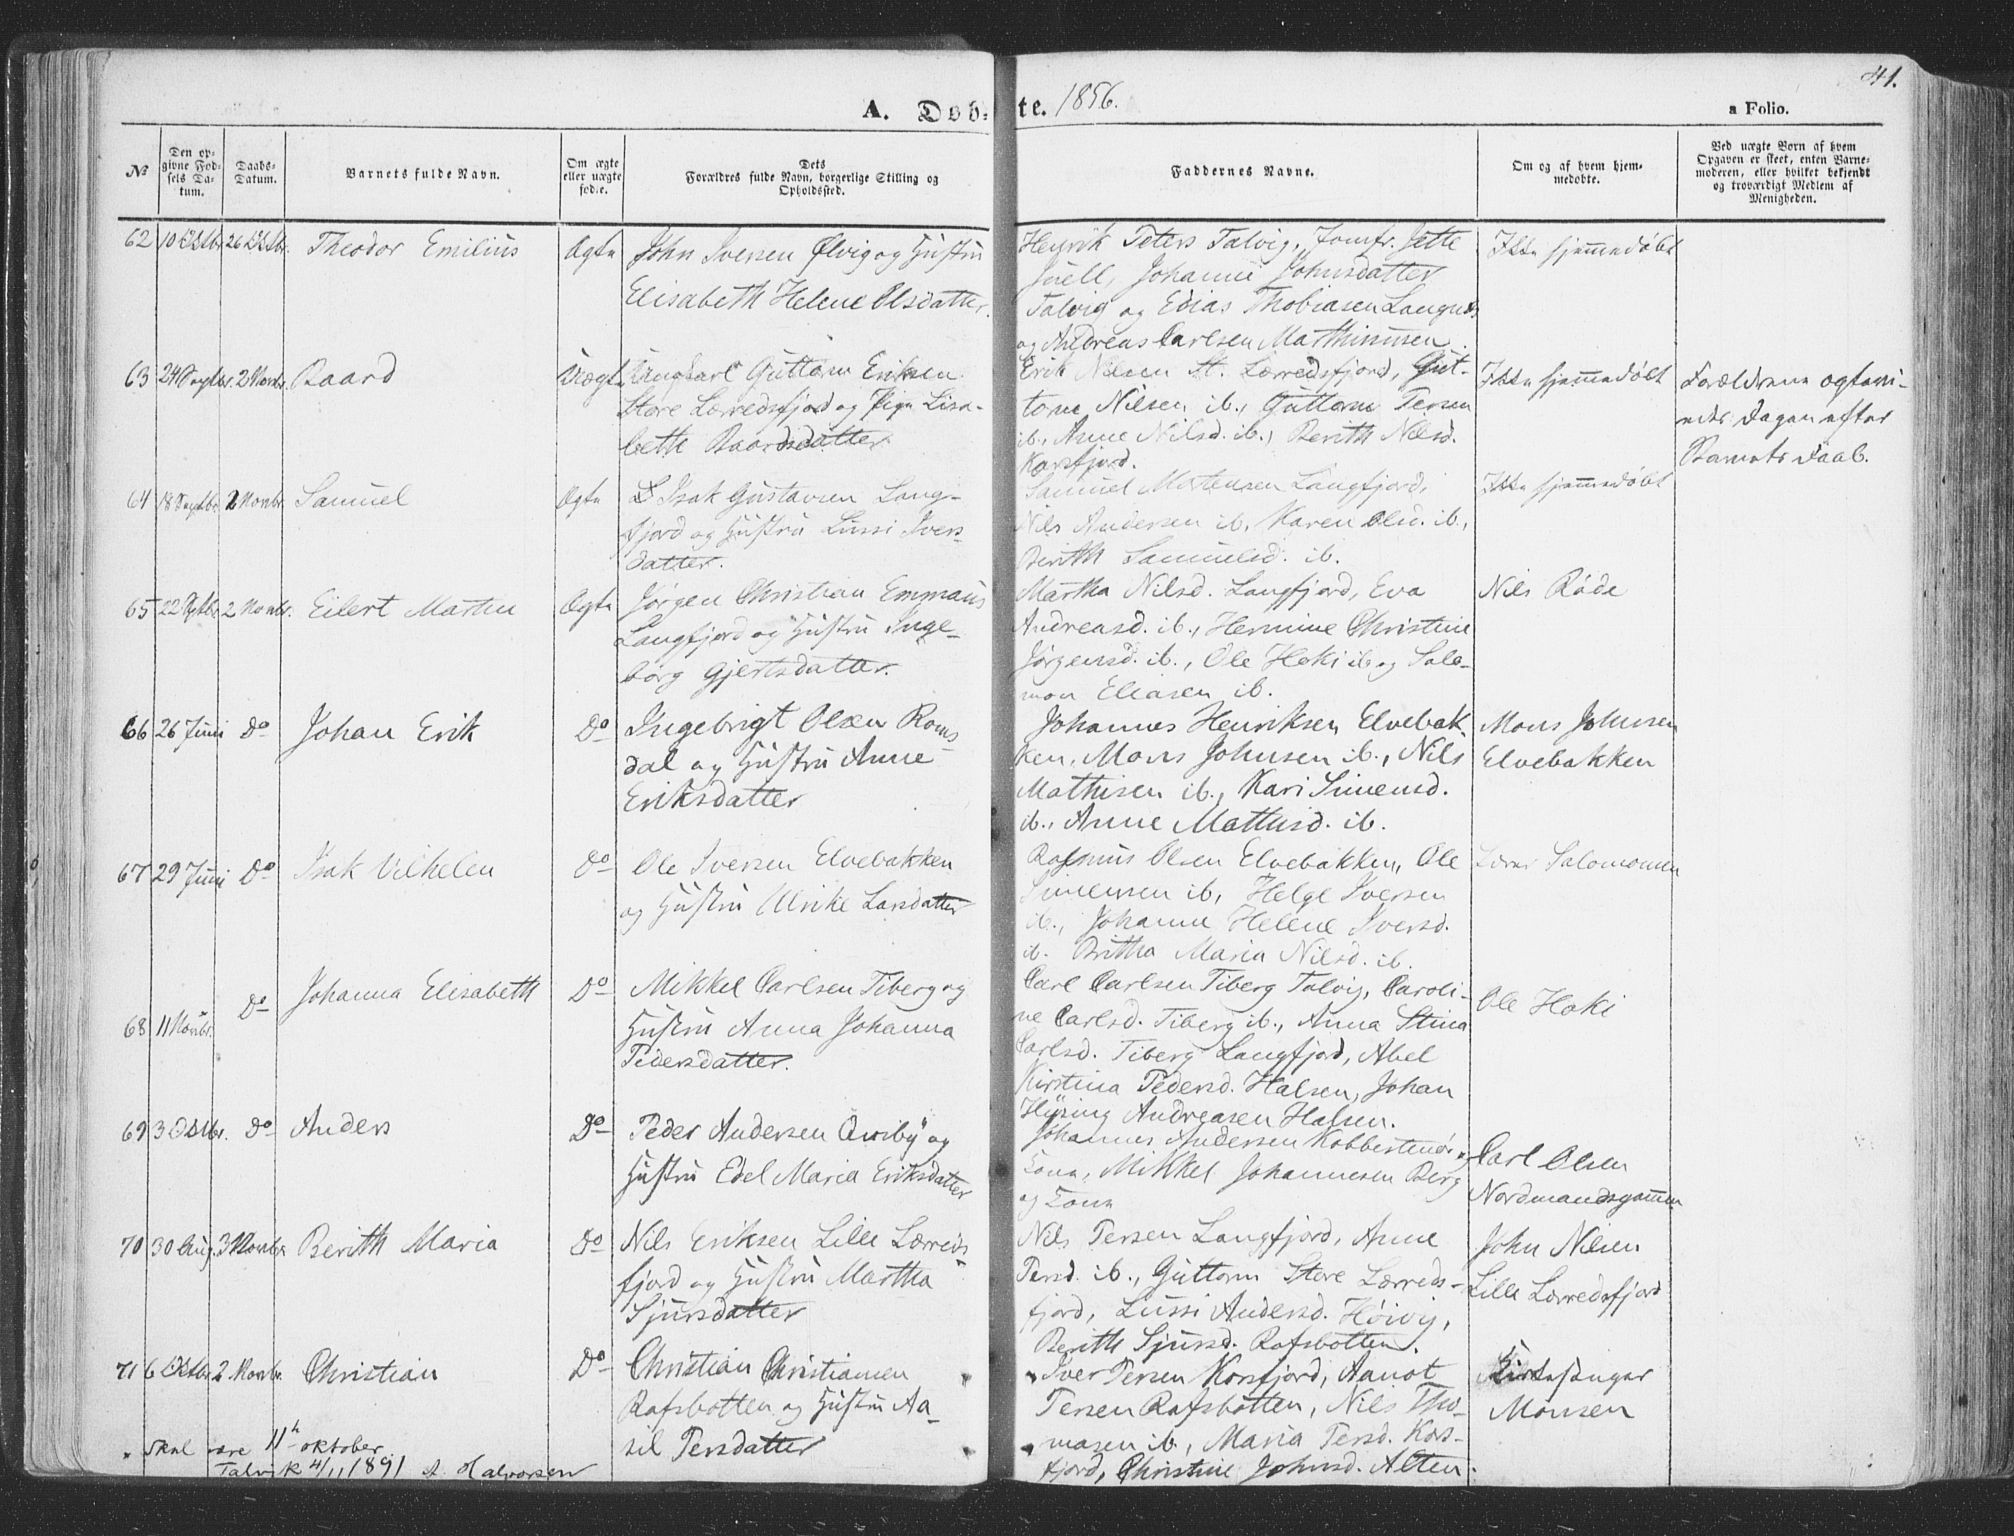 41.
A. Døb-
te. 1856.
a Folio.
№
Den op-
givne Fød-
sels Da-
tum.
Daabs-
Datum.
Barnets fulde Navn.
Om ægte
eller uægte
født.
Dets
Forældres fulde Navn, borgerlige Stilling og
Opholdssted.
Faddernes Navne.
Om og af hvem hjem-
medøbte.
Ved uægte Børn af hvem
Opgaven er skeet, enten Barne-
moderen, eller hvilket bekjendt
og troværdigt Medlem af
Menigheden.
62 10 Oktbr. 26 Oktbr. Theodor Emilius Ægte
John Iversen Ølvig og Hustru
Elisabeth Helene Olsdatter.
Henrik Peters Talvig, Jomfr. Jette
Juell, Johanne Johnsdatter
Talvig og Edias Thobiasen Langnes
og Andreas Carlsen Marthinussen.
Ikke hjemmedøbt
63 24 Septbr. 2 Novbr. Baard Uægte
Ungkarl Guttorm Eriksen
Store Lærredsfjord og Pige Lisa-
beth Baardsdatter.
Erik Nilsen St. Lærredsfjord, Gut-
torm Nilsen ib., Guttorm Persen
ib., Anne Nilsd. ib., Berith Nilsd.
Korsfjord.
Ikke hjemmedøbt
Forældrene ægtevi-
edes Dagen efter
Barnets Daab.
64 18 Septbr. 2 Novbr. Samuel Ægte
Isak Gustavsen Lang-
fjord og Hustru Lussi Ivers-
datter.
Samuel Mortensen Langfjord,
Nils Andersen ib., Karen Olsd. ib.,
Berith Samuelsd. ib.
Ikke hjemmedøbt
65 22 Septbr. 2 Novbr. Eilert Martin Ægte
Jørgen Christian Emmaus
Langfjord og Hustru Inge-
borg Gjertsdatter.
Martha Nilsd. Langfjord, Eva
Andreasd. ib., Hermine Christine
Jørgensd. ib., Ole Hoki ib. og Salo-
mon Eliasen ib.
Nils Røde
66 26 Juni Do Johan Erik Do
Ingebrigt Olsen Roms-
dal og Hustru Anne
Eriksdatter
Johannes Henriksen Elvebak-
ken, Mons Johnsen ib., Nils
Mathisen ib., Kari Simensd.
ib., Anne Mathisd. ib.
Mons Johnsen
Elvebakken
67 29 Juni Do Isak Vilhelm Do
Ole Iversen Elvebakken
og Hustru Ulrike Larsdatter
Rasmus Olsen Elvebakken, Ole
Simensen ib, Helge Iversen
ib., Johanne Helene Iversd.
ib. Britha Maria Nilsd. ib.
Lærer Salomonsen
68 11 Novbr. Do Johanna Elisabeth Do
Mikkel Carlsen Tiberg og
Hustru Anna Johanna
Pedersdatter.
Carl Carlsen Tiberg Talvig, Caroli-
ne Carlsd. Tiberg ib., Anna Stina
Carlsd. Tiberg Langfjord, Abel
Kirstina Pedersd. Halsen, Johan
Hÿsing Andreasen Halsen.
Ole Hoki
69 3 Oktbr. Do Anders Do
Peder Andersen Qvæby og
Hustru Edel Maria Eriksdatter
Johannes Andersen Kobbernæs og
Kone, Mikkel Johannesen Berg
og Kone
Carl Olsen
Nordmandsgammen
70 30 Aug. 3 Novbr. Berith Maria Do
Nils Eriksen Lille Lærreds-
fjord og Hustru Martha
Sjursdatter
Nils Persen Langfjord, Anne
Persd. ib., Guttorm Store Lærreds-
fjord, Lussi Andersd. Høivig,
Berith Sjursd. Rafsbotten.
John Nilsen
Lille Lærredsfjord
71 6 Oktbr. 2 Novbr. Christian Do
Christian Christiansen
Rafsbotten og Hustru Aa-
sil Persdatter
Iver Persen Korsfjord, Aanot
Persen Rafsbotten, Nils Tho-
masen ib., Maria Persd. Kors-
fjord, Christine Johnsd. Alten.
Kirkesanger
Monsen
skal være 11te oktober
Talvik 4/11 1891 A. Halvorsen